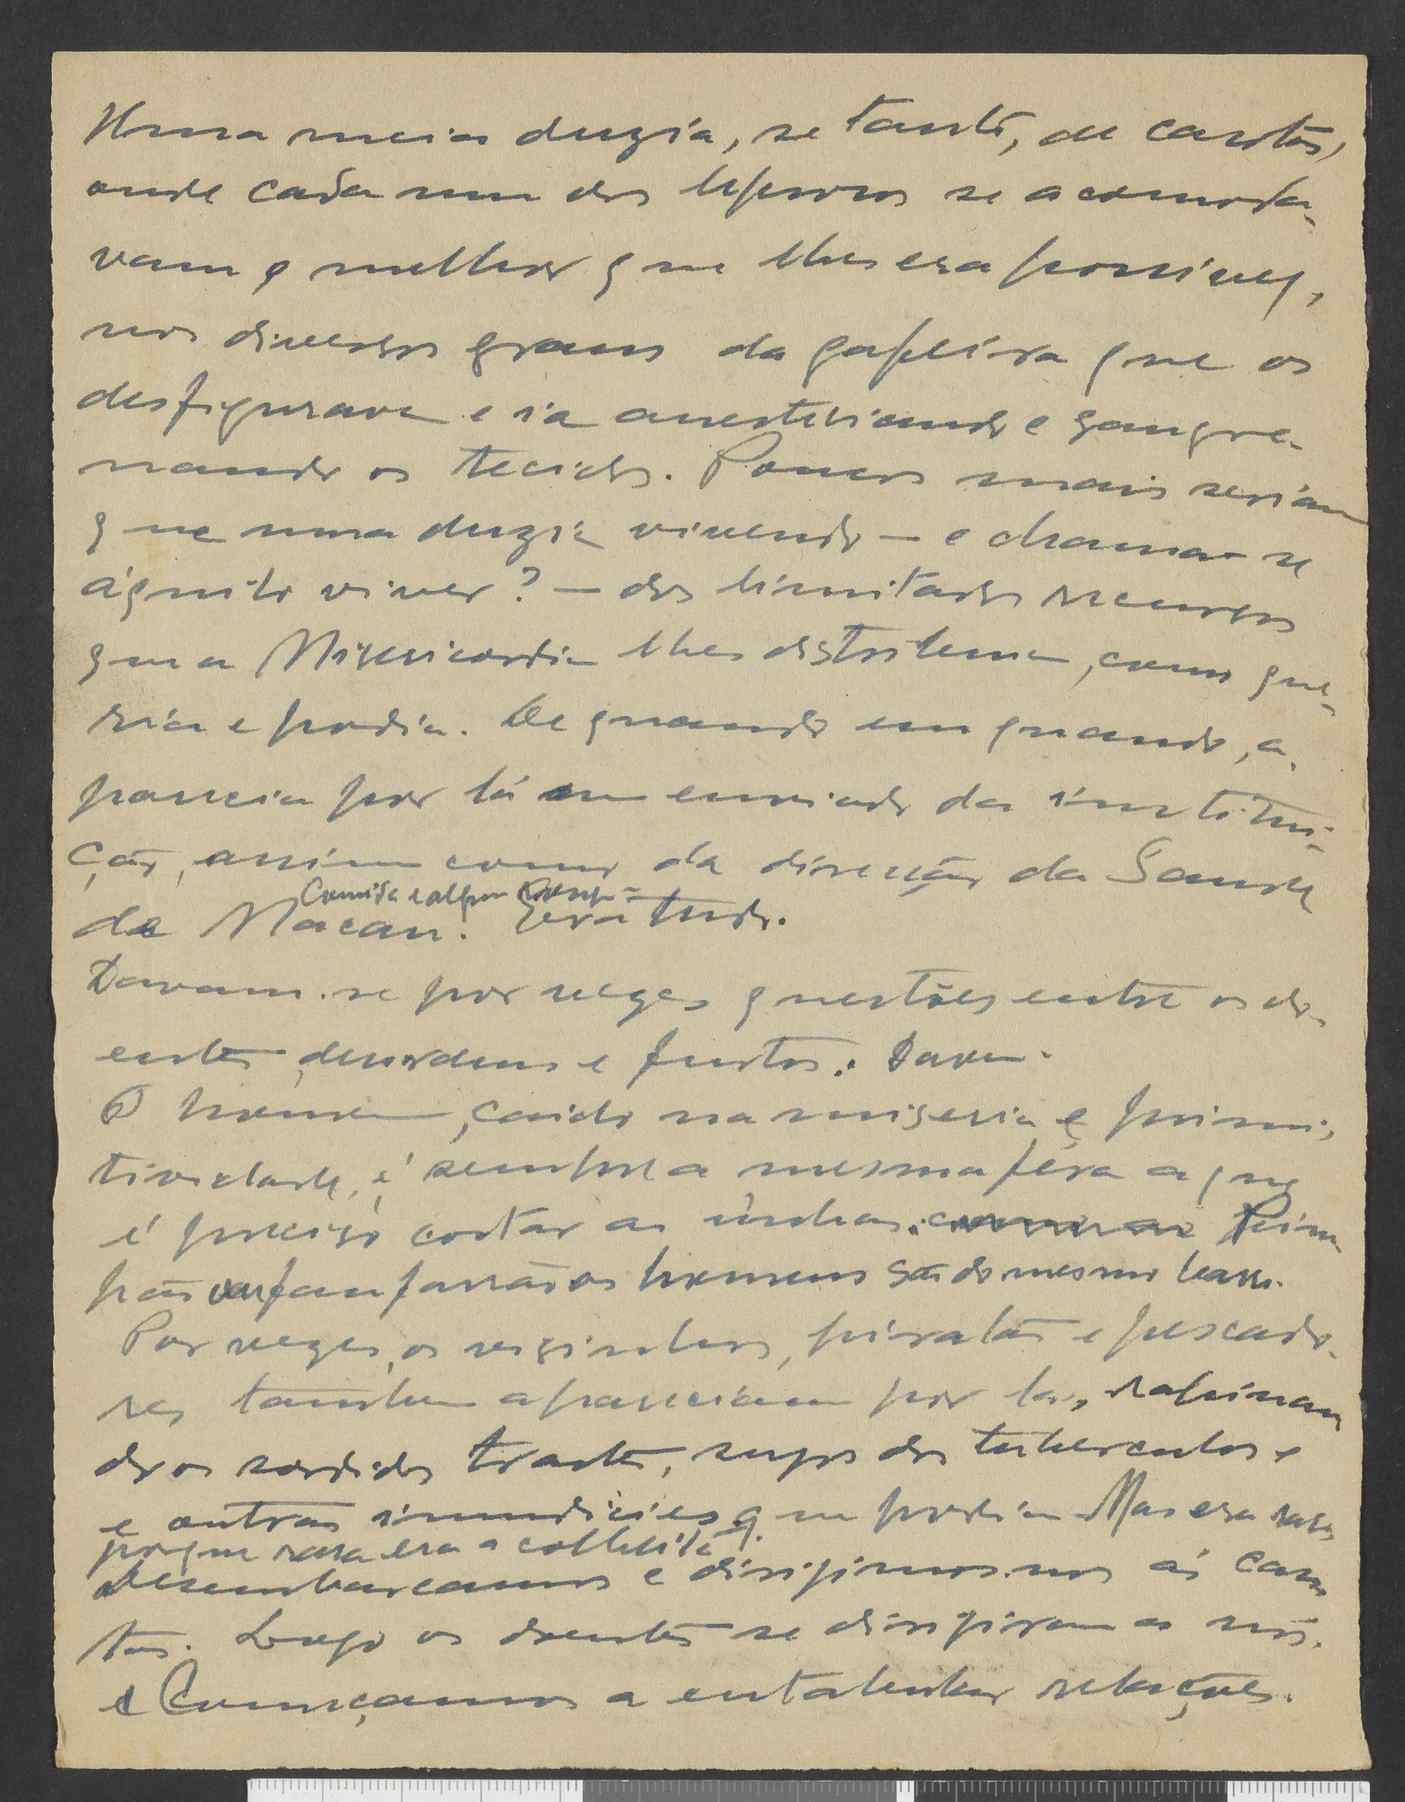 Uma meia duzia, se tanto, de casotas,
onde cada um dos leprosos se acomoda-
vam o melhor que lhes era possivel,
nos diversos graus da gafeira que os
desfigurava e ia anestesiando e gangre-
nando os tecidos. Poucos mais seriam
que uma duzia vivendo – e chama-se
áquilo viver? – dos limitados recursos
que a Misericordia lhes distribuia, como que-
ria e podia. De quando em quando, a-
parecia por lá um enviado da institui-
ção, assim como da direcção da Saude
Comida e algum
de Macau. era tudo.
Davam-se por vezes questões entre os do-
entes, desordens e furtos.
O homem, caido na miseria e primi-
tividade, é sempre a mesma féra a que
é preciso cortar as unhas.
os homens são do mesmo barro.
Por vezes, os vizinhos, piratas e pescado-
res tambem apareciam por lá, rapinan
do os sordidos trastes, sujos dos tuberculos e
e outras imundicies que podiam. Mas era rara
porque rara era a colheita
Desembarcamos e dirigimos-nos ás caso
tas. Logo os doentes se dirigiram a nós.
e Começamos a entabular relações.